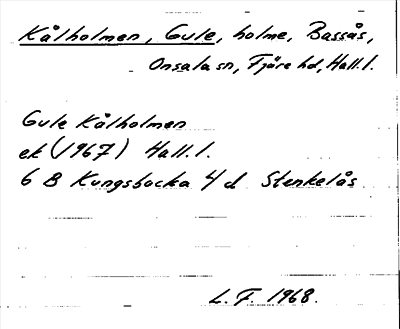 Kålholmen, Gule, holme, Bassås,
Onsala sn, Fjäre hd, Hall. l.
Gule Kålholmen
ek (1967) Hall. l.
6 B Kungsbacka 4 d Stenkelås
L. F. 1968.